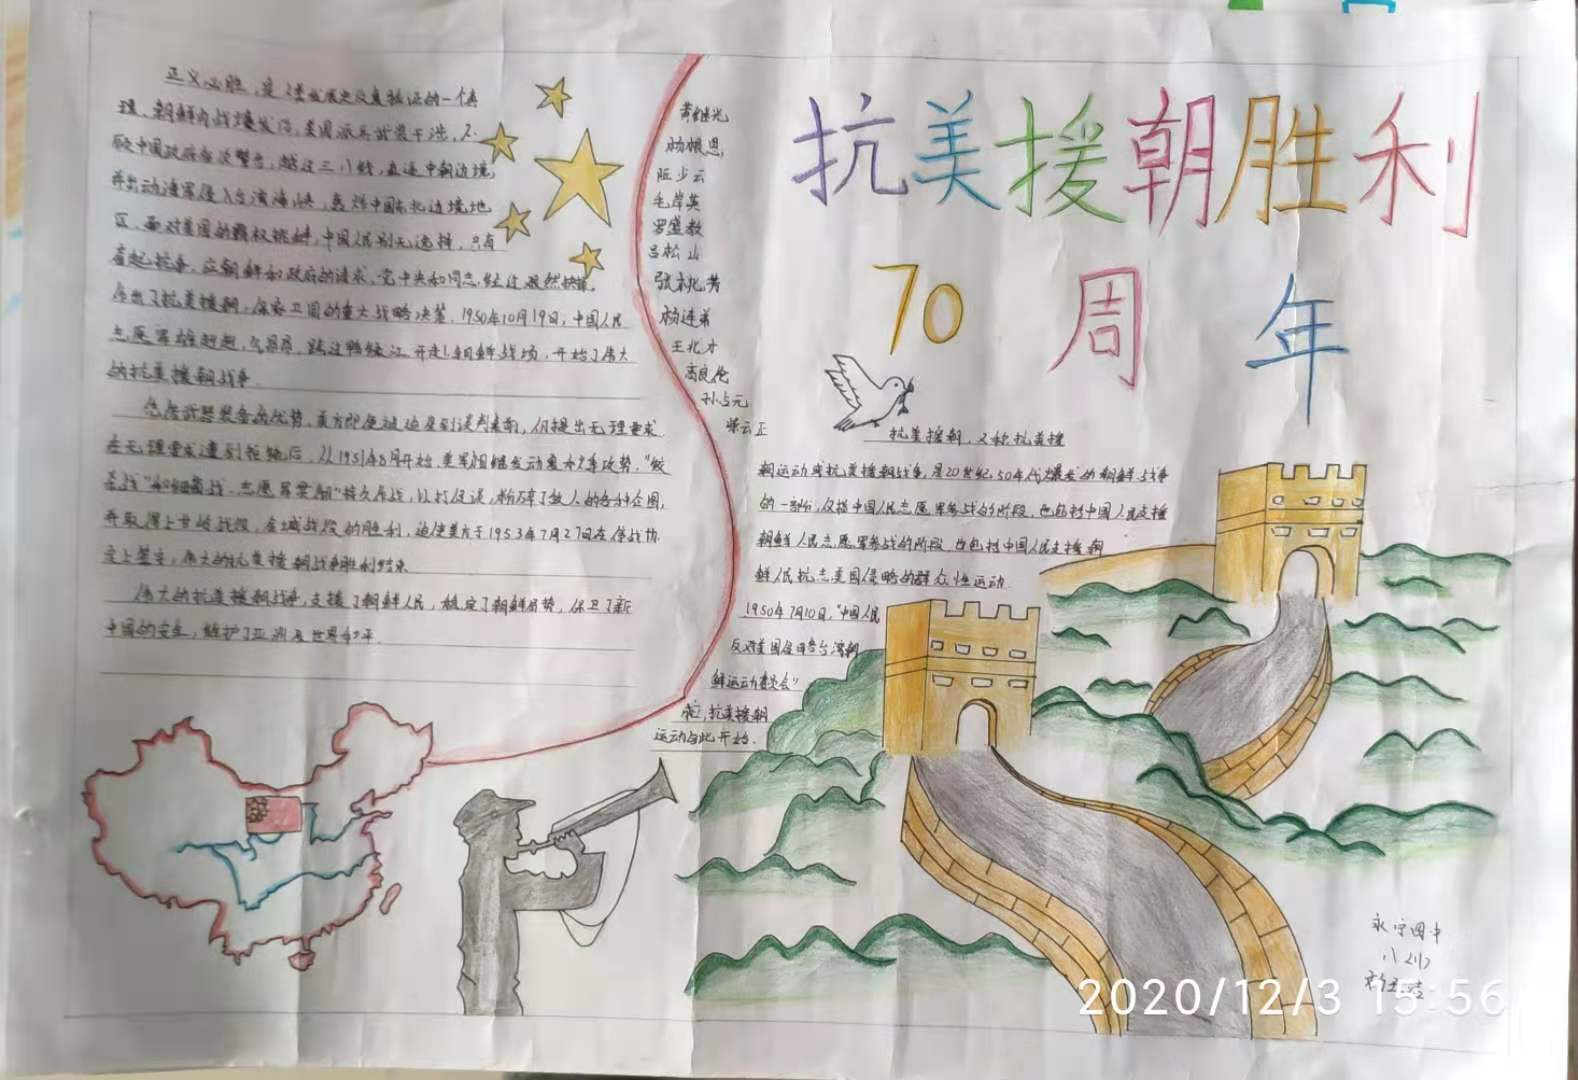 抗美援朝胜利
70 周年
正义必胜,是
理。朝鲜内战爆发后,美国派兵武装干涉,不
顾中国政府多次警告,越过三八线,直逼中朝边境,
并出动海军侵入台湾海峡,轰炸中国东北边境地
区。面对美国的霸权挑衅,中国人民别无选择,只有
奋起抗争。应朝鲜和政府的请求,党中央和同志,毅然
作出了抗美援朝,保家卫国的重大战略决策。1950年10月19日,中国人民
志愿军雄赳赳,气昂昂,跨过鸭绿江,开赴朝鲜战场,开始了伟大
的抗美援朝战争。
凭借武器装备的优势,美方即便被迫坐到谈判桌前,仍提出无理要求
在无理要求遭到拒绝后,从1951年8月开始,美军相继发动夏秋季攻势,"绞
杀战"和细菌战。志愿军实施"持久作战,以打促谈,粉碎了敌人的各种企图,
并取得上甘岭战役,金城战役的胜利,迫使美方于1953年7月27日在停战协
定上签字,伟大的抗美援朝战争胜利结束。
伟大的抗美援朝战争,支援了朝鲜人民,稳定了朝鲜局势,保卫了新
中国的安全,维护了亚洲及世界和平。
黄继光
杨根思
邱少云
毛岸英
罗盛教
吕松山
张桃芳
杨连弟
王兆才
孙占元
柴云正
抗美援朝,又称抗美援
朝运动或抗美援朝战争,是20世纪50年代爆发的朝鲜战争
的一部分,仅指中国人民志愿军参战的阶段,也包括中国人民支援
朝鲜人民志愿军参战的阶段,也包括中国人民支援朝
鲜人民抗击美国侵略的群众性运动。
1950年7月10日,"中国人民
反对美国侵略台湾朝
鲜运动委员会"
成立,抗美援朝
运动由此开始。
永宁四中
八(1)
2020/12/3 15:56